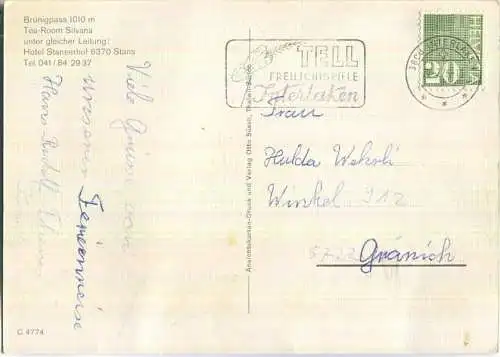 Brünigpass 1010 m
Tea-Room Silvana
unter gleicher Leitung:
Hotel Stanserhof 6370 Stans
Tel. 041 / 84 29 37
Viele Grüsse von
unserer Ferienreise
Hans Rudolf
C 4774
Ansichtskarten-Druck und Verlag Otto Süess,
TELL
FREILICHTSPIELE
Interlaken
HELVETIA
20
Frau
Hulda
Winkel 912
5722 Gränich